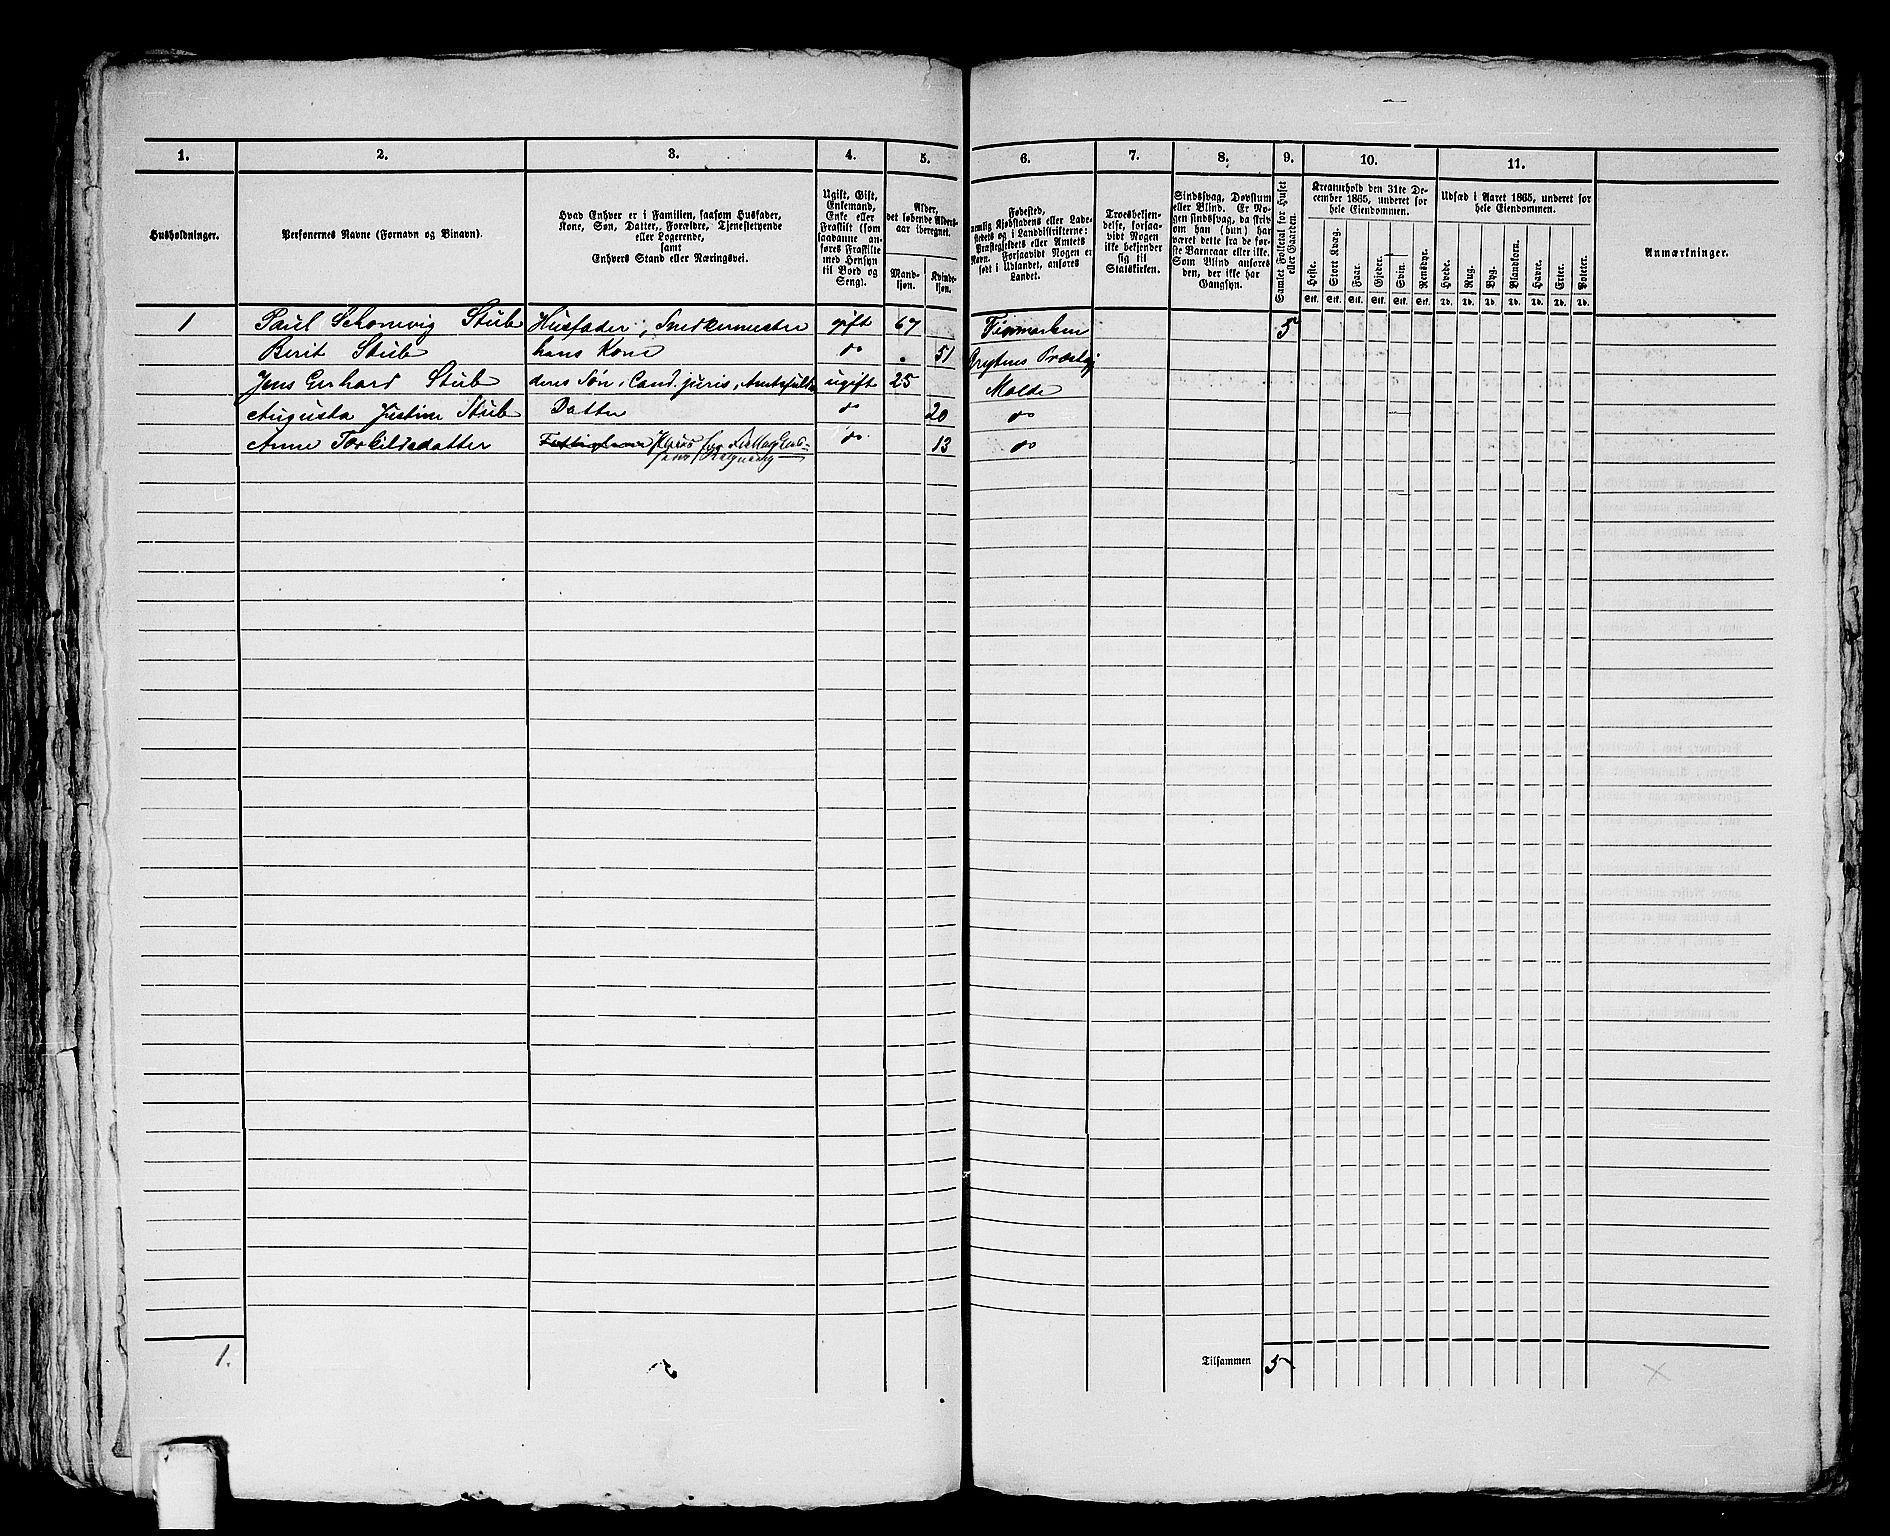 1. 2. 3. 4. 5. 6. 7. 8. 9. 10. 11.
Husholdninger.
Personernes Navne (Fornavn og Binavn).
Hvad Enhver er i Familien, saasom Husfader,
Kone, Søn, Datter, Forældre, Tjenestetyende
eller Logerende,
samt
Enhvers Stand eller Næringsvei.
Ugift, Gift,
Enkemand,
Enke eller
Fraskilt (som
saadanne an-
føres Fraskilte
med Hensyn
til Bord og
Seng).
Alder,
det løbende Alders-
aar iberegnet.
Mand-
kjøn.
Kvinde-
kjøn.
Fødested,
nemlig Kjøbstadens eller Lade-
stedets og i Landdistrikterne:
Præstegjeldets eller Amtets
Navn. Forsaavidt Nogen er
født i Udlandet, anføres
Landet.
Troesbekjen-
delse, forsaa-
vidt Nogen
ikke bekjender
sig til
Statskirken.
Sindssvag, Døvstum
eller Blind. Er No-
gen sindssvag, da skriv
om han (hun) har
været dette fra de før-
ste Barneaar eller ikke.
Som Blind anføres
den, der ikke har
Gangsyn.
Samlet Folketal for Huset
eller Gaarden.
Kreaturhold den 31te De-
cember 1865, underet for
hele Eiendommen.
Heste. Stort Kvæg. Faar. Gjeder. Svin. Rensdyr.
Stk. Stk. Stk. Stk. Stk. Stk.
Udsæd i Aaret 1865, underet for
hele Eiendommen.
Hvede. Rug. Byg. Blandkorn. Havre. Erter. Poteter.
Td. Td. Td. Td. Td. Td. Td.
Anmærkninger.
1 Paul Schonvig Stub Husfader, Snedkermester gift 67 Finmarken 5
Berit Stub hans Kone do 51 Grytens Præstgj
Jens Gerhard Stub deres Søn, Cand. juris, Amtsfuldm ugift 25 Molde
Augusta Justine Stub Datter do 20 do
Anne Torkildsdatter do 13 do
1.
Tilsammen 5